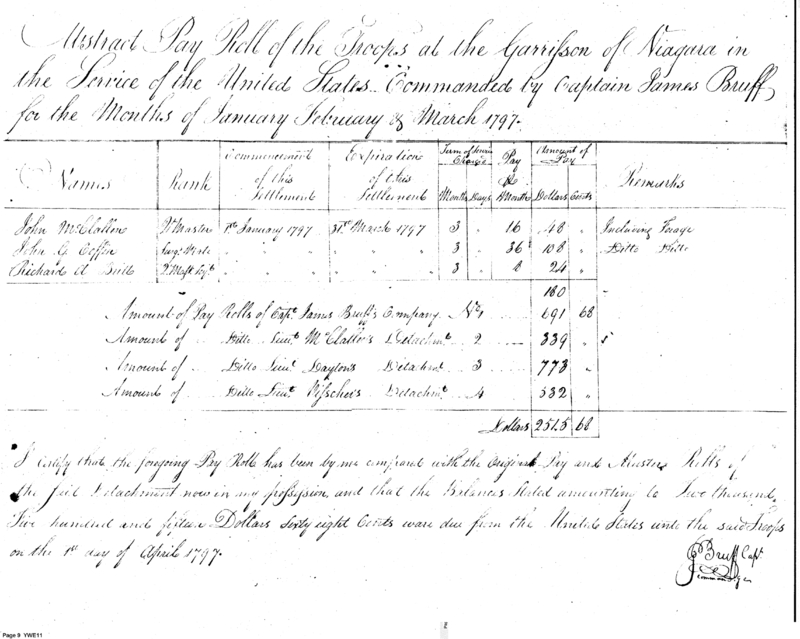 Abstract Pay Roll of the Troops at the Garrisson of Niagara in
the Service of the United States Commanded by Captain James Bruff
for the Months of January February & March 1797.
Names Rank Commencement of this Settlement Expiration of this Settlement Term of Service Charge Months Days Pay Months Amount of Pay Dollars Cents Remarks
John McClallen Qr Master 1st January 1797 31st March 1797 3 " 16 48 " Including Forage
John G. Coffin Surgs Mate " " " " 3 " 36 108 " Ditto Ditto
Richard A 3 " 8 24 "
180
Amount of Pay Rolls of Capt James Bruff's Company No 1 691 68
Amount of Ditto Lieut McClallen's Detachmt 2 339 "
Amount of Ditto Lieut Dayton's Detachmt 3 773 "
Amount of Ditto Lieut Visscher's Detachmt 4 532 "
Dollars 2515 68
I certify that the foregoing Pay Roll has been by me compared with the Original Pay and Muster Rolls of
the Detachment now in my possession, and that the Balances Stated amounting to Two thousand
Five hundred and fifteen Dollars Sixty eight Cents were due from the United States unto the said Troops
on the 1st day of April 1797.
J Bruff Capt
Page 9 YWE11